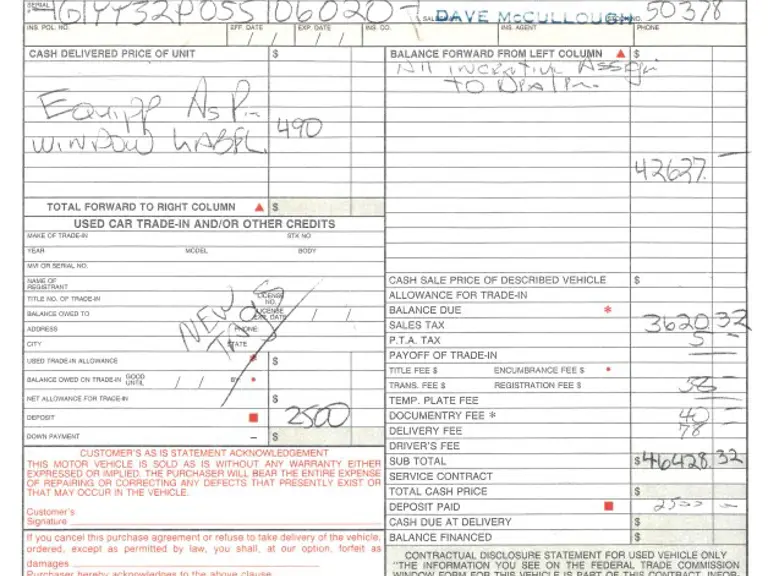 SERIAL 4G1YY32P055106020 SALESMAN DAVE McCULLOUGH STOCK NO. 50378
INS. POL. NO. EFF. DATE / / EXP. DATE / / INS. CO. INS. AGENT PHONE
CASH DELIVERED PRICE OF UNIT $
BALANCE FORWARD FROM LEFT COLUMN ▲ $
All incentive Assign
to Dealer.
Equipp As Per 490
WINDOW LABEL.
42627.
TOTAL FORWARD TO RIGHT COLUMN ▲ $
USED CAR TRADE-IN AND/OR OTHER CREDITS
MAKE OF TRADE-IN STK NO
YEAR MODEL BODY
MVI OR SERIAL NO.
NAME OF REGISTRANT
TITLE NO. OF TRADE-IN LICENSE NO.
BALANCE OWED TO LICENSE EXP. DATE / /
NEW TAGS
ADDRESS PHONE
CITY STATE
USED TRADE-IN ALLOWANCE * $
BALANCE OWED ON TRADE-IN GOOD UNTIL / / BY *
NET ALLOWANCE FOR TRADE-IN $
DEPOSIT ■ 2500
DOWN PAYMENT – $
CASH SALE PRICE OF DESCRIBED VEHICLE $
ALLOWANCE FOR TRADE-IN
BALANCE DUE *
SALES TAX 3620 32
P.T.A. TAX 5 —
PAYOFF OF TRADE-IN
TITLE FEE $ ENCUMBRANCE FEE $ *
TRANS. FEE $ REGISTRATION FEE $ 38 —
TEMP. PLATE FEE
DOCUMENTRY FEE * 40 —
DELIVERY FEE 78
DRIVER'S FEE
SUB TOTAL $ 46428.32
SERVICE CONTRACT
TOTAL CASH PRICE $
DEPOSIT PAID ■ 2500 —
CASH DUE AT DELIVERY $
BALANCE FINANCED $
CUSTOMER'S AS IS STATEMENT ACKNOWLEDGEMENT
THIS MOTOR VEHICLE IS SOLD AS IS WITHOUT ANY WARRANTY EITHER
EXPRESSED OR IMPLIED. THE PURCHASER WILL BEAR THE ENTIRE EXPENSE
OF REPAIRING OR CORRECTING ANY DEFECTS THAT PRESENTLY EXIST OR
THAT MAY OCCUR IN THE VEHICLE.
Customer's
Signature
If you cancel this purchase agreement or refuse to take delivery of the vehicle,
ordered, except as permitted by law, you shall, at our option, forfeit as
damages
Purchaser hereby acknowledges to the above clause
CONTRACTUAL DISCLOSURE STATEMENT FOR USED VEHICLE ONLY
"THE INFORMATION YOU SEE ON THE FEDERAL TRADE COMMISSION
WINDOW FORM FOR THIS VEHICLE IS PART OF THIS CONTRACT. INFOR-